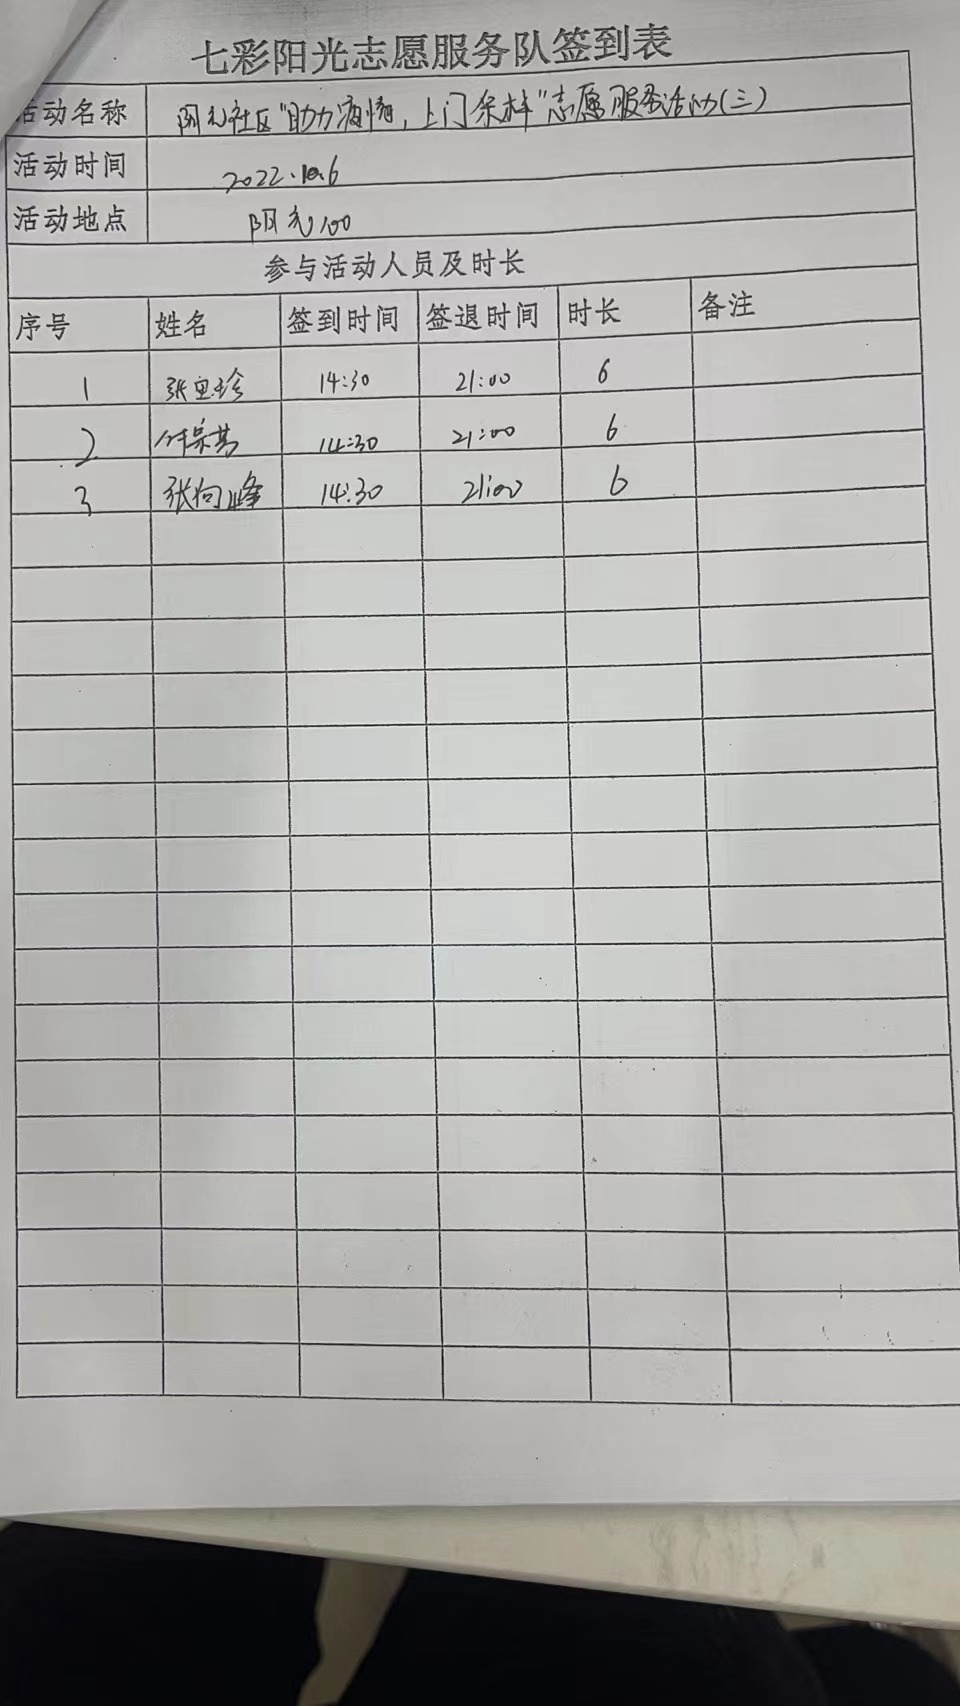 七彩阳光志愿服务队签到表
活动名称 阳光社区"助力疫情,上门采样"志愿服务活动(三)
活动时间 2022.10.6
活动地点 阳光100
参与活动人员及时长
序号 姓名 签到时间 签退时间 时长 备注
1 14:30 21:00 6
2 14:30 21:00 6
3 张向峰 14:30 21:00 6